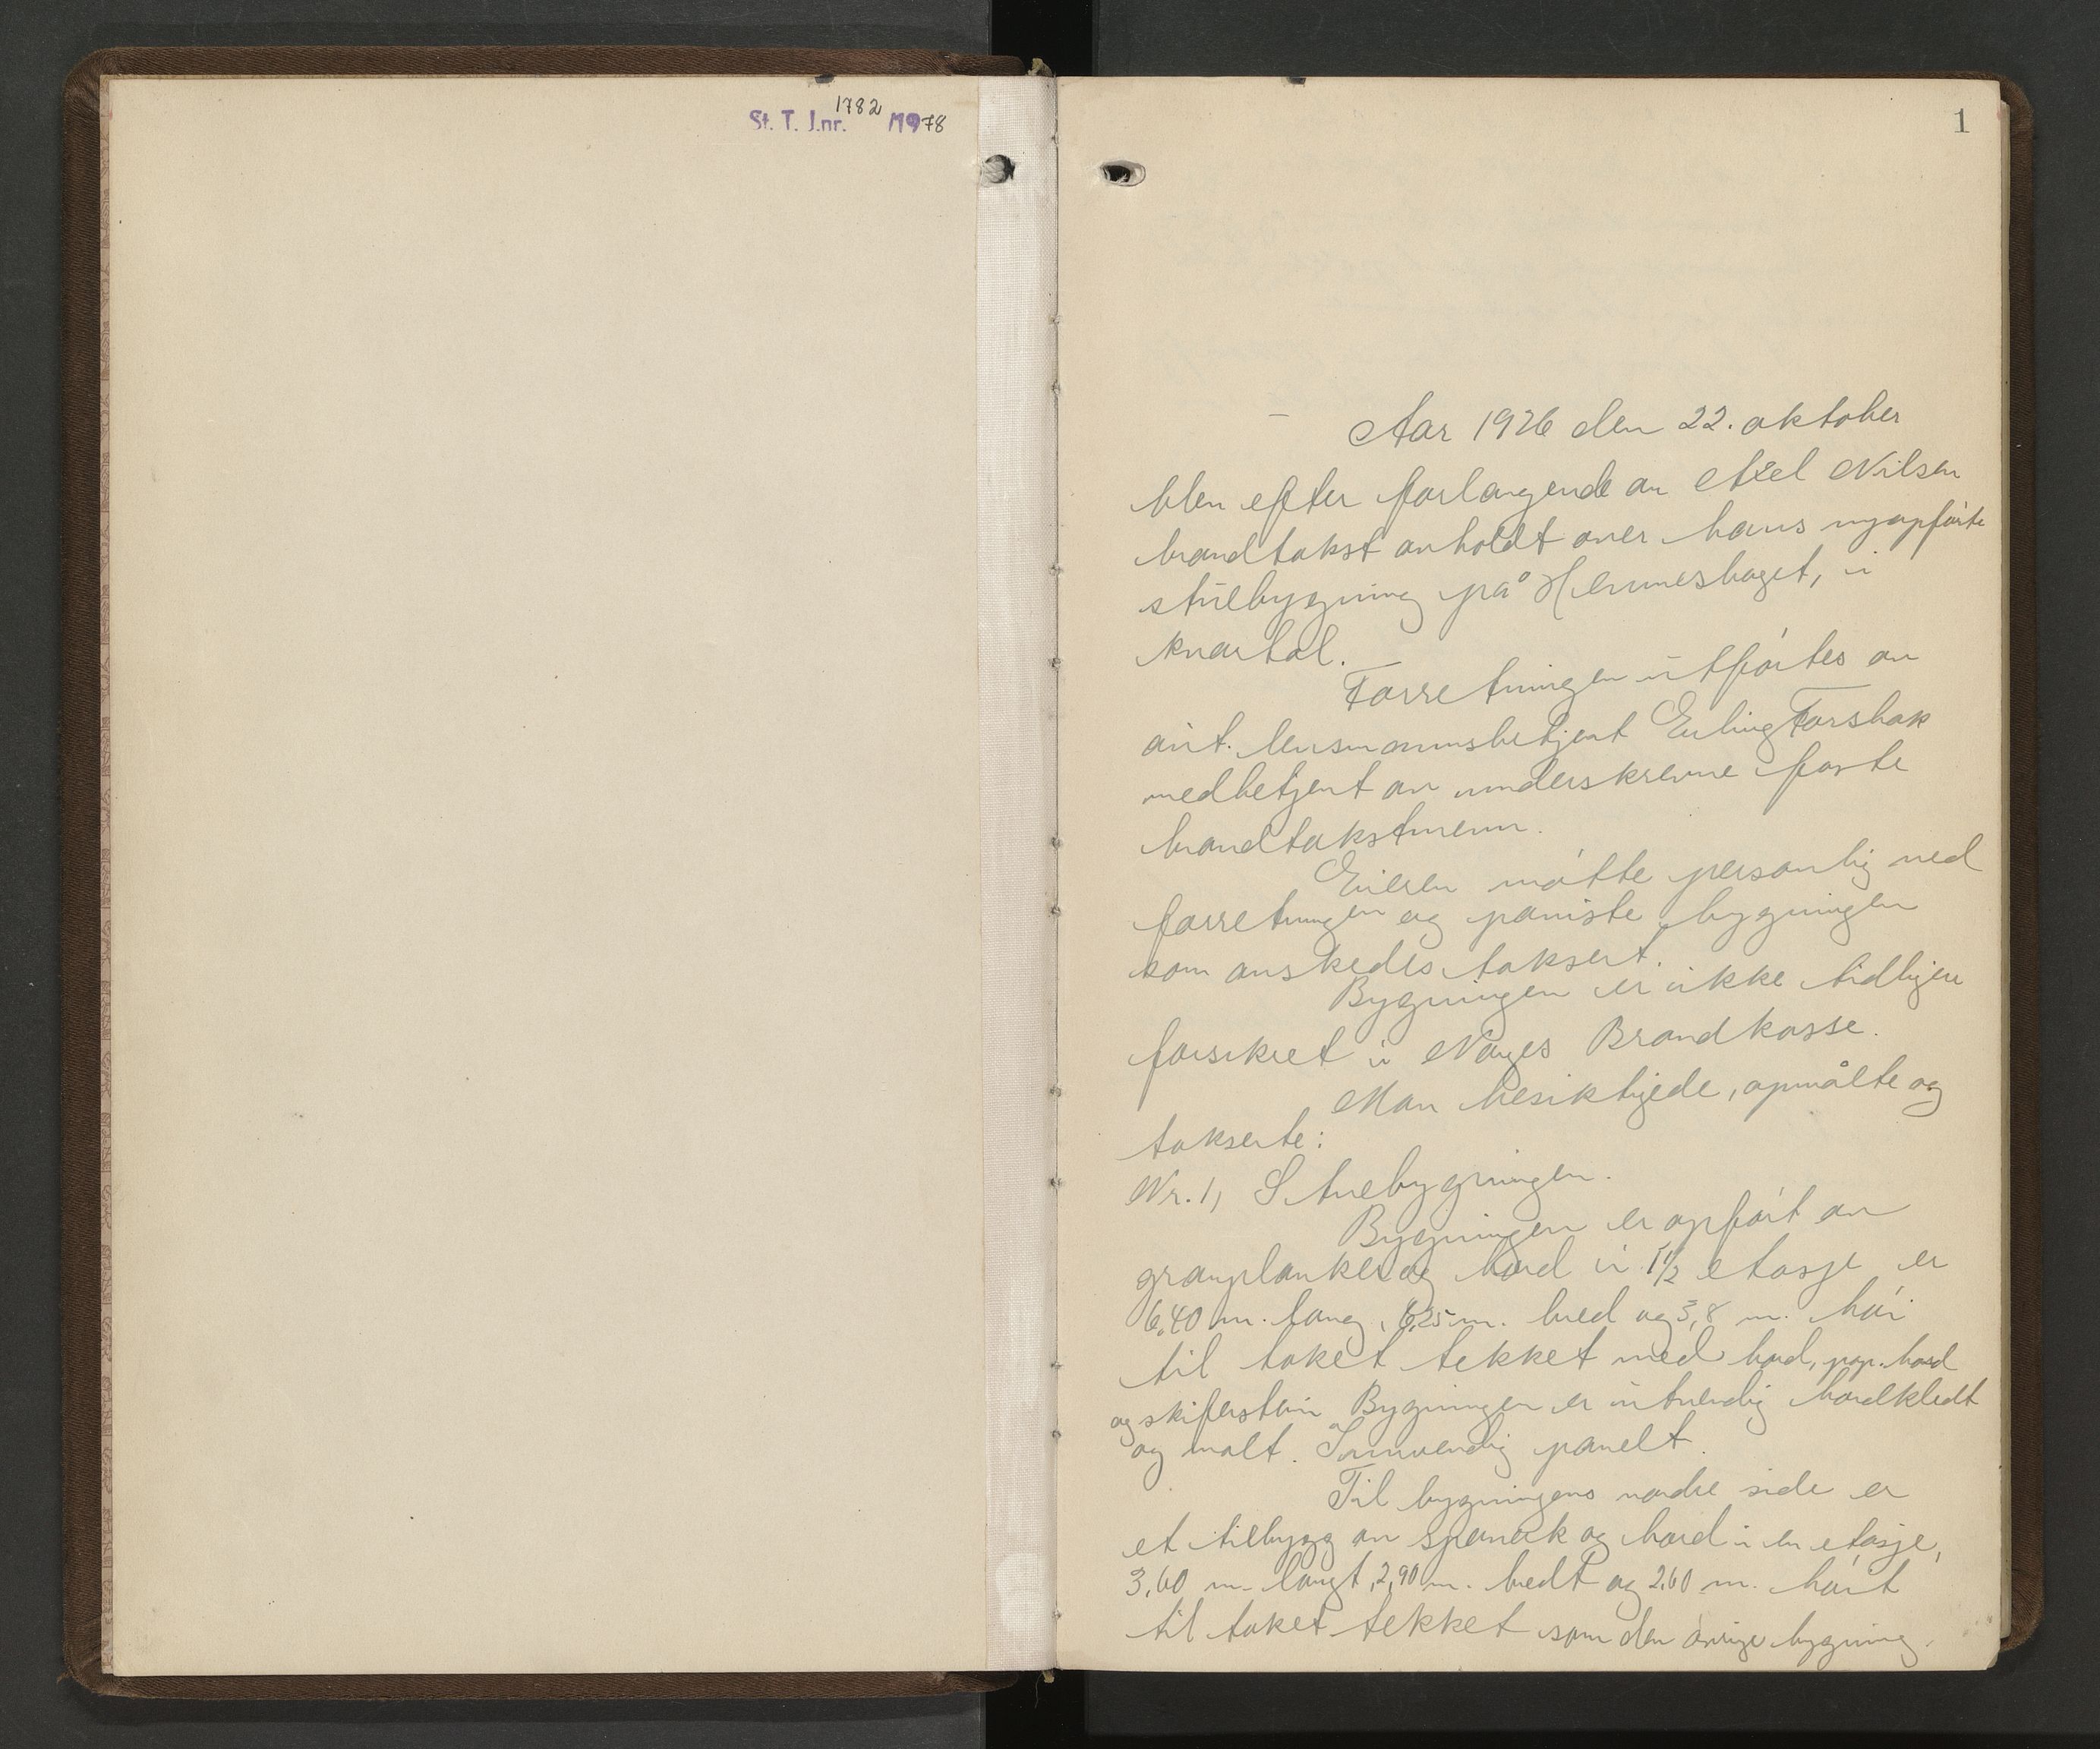 St. T. J.nr. 1782 /1978
1
Aar 1926 den 22. oktober
blev efter forlangende av Aksel Nilsen
brandtakst avholdt over hans nyopførte
stuebygning på Hemneshaget, i
kvartal.
Forretningen utførtes av
aut. lensmannsbetjent Erling Forsbak
medbetjent av underskrevne faste
brandtakstmenn.
Eieren møtte personlig ved
forretningen og påviste bygningen
som ønskedes taksert.
Bygningen er ikke tidligere
forsikret i Norges Brandkasse.
Man besiktigede, opmålte og
takserte:
Nr. 1, Stuebygningen.
Bygningen er opført av
granplanker og bord i 1 1/2 etasje er
6,40 m. lang, 6,25 m. bred og 3,8 m. høi
til taket tekket med bord, pap. bord
og skiferstein Bygningen er utvendig bordkledt
og malt. Innvendig panelt.
Til bygningens nordre side er
et tilbygg av spanerk og bord i en etasje,
3,60 m. langt, 2,90 m. bredt og 2,60 m. høit
til taket tekket som den øvrige bygning.